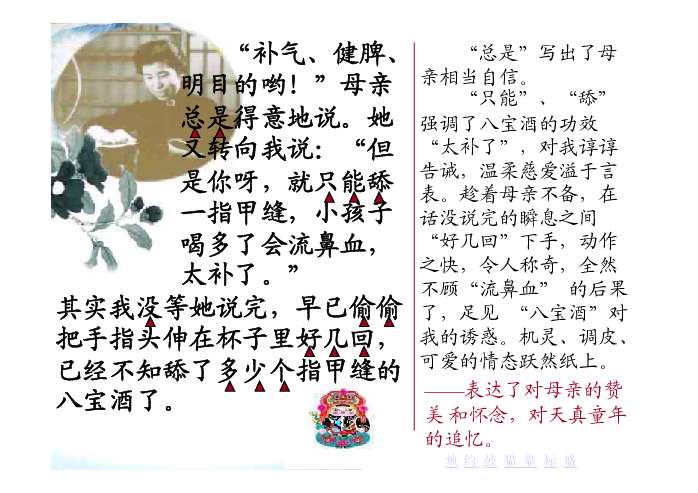 “补气、健脾、
明目的哟！”母亲
总是得意地说。她
又转向我说：“但
是你呀，就只能舔
一指甲缝，小孩子
喝多了会流鼻血，
太补了。”
其实我没等她说完，早已偷偷
把手指头伸在杯子里好几回，
已经不知舔了多少个指甲缝的
八宝酒了。
“总是”写出了母
亲相当自信。
“只能”、“舔”
强调了八宝酒的功效
“太补了”，对我谆谆
告诫，温柔慈爱溢于言
表。趁着母亲不备，在
话没说完的瞬息之间
“好几回”下手，动作
之快，令人称奇，全然
不顾“流鼻血” 的后果
了，足见 “八宝酒”对
我的诱惑。机灵、调皮、
可爱的情态跃然纸上。
——表达了对母亲的赞
美和怀念，对天真童年
的追忆。